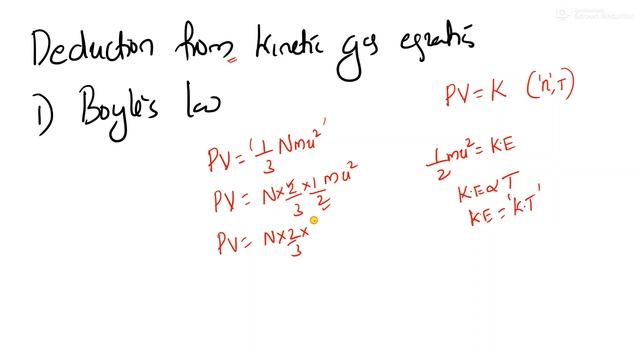 Deduction from Kinetic gas equation
1) Boyle's law
PV = K ('n', T)
PV = '1/3 Nmu²'
PV = N × 2/3 × 1/2 mu²
PV = N × 2/3 ×
1/2 mu² = K.E
K.E ∝ T
K.E = 'K.T'